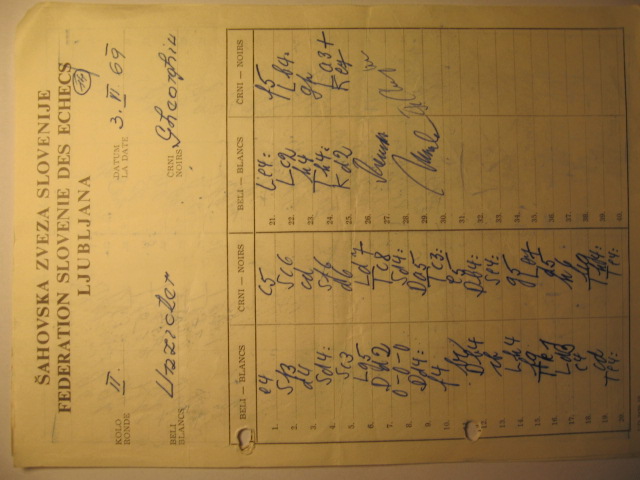 ŠAHOVSKA ZVEZA SLOVENIJE
FEDERATION SLOVENIE DES ECHECS
LJUBLJANA
KOLO
RONDE II. DATUM
LA DATE 3. VI 69
BELI
BLANCS Unzicker ČRNI
NOIRS Gheorghiu
BELI — BLANCS ČRNI — NOIRS BELI — BLANCS ČRNI — NOIRS
1. e4 c5 21. Le4: f5
2. Sf3 Sc6 22. Lc2 Lb4:
3. d4 cd 23. h4 gh
4. Sd4: Sf6 24. Th4: La3+
5. Sc3 d6 25. Kd2
6. Lg5 Ld7 26.
7. Dd2 Tc8 27.
8. 0-0-0 Sd4: 28.
9. Dd4: Da5 29.
10. f4 Tc3: 30.
11. e5 31.
12. Db4 Db4: 32.
13. cb Se4: 33.
14. Lh4 g5 34.
15. fg 35.
16. Te1 d5 36.
17. Ld3 h6 37.
18. c4 38.
19. cd Th4: 39.
20. Te4: 40.